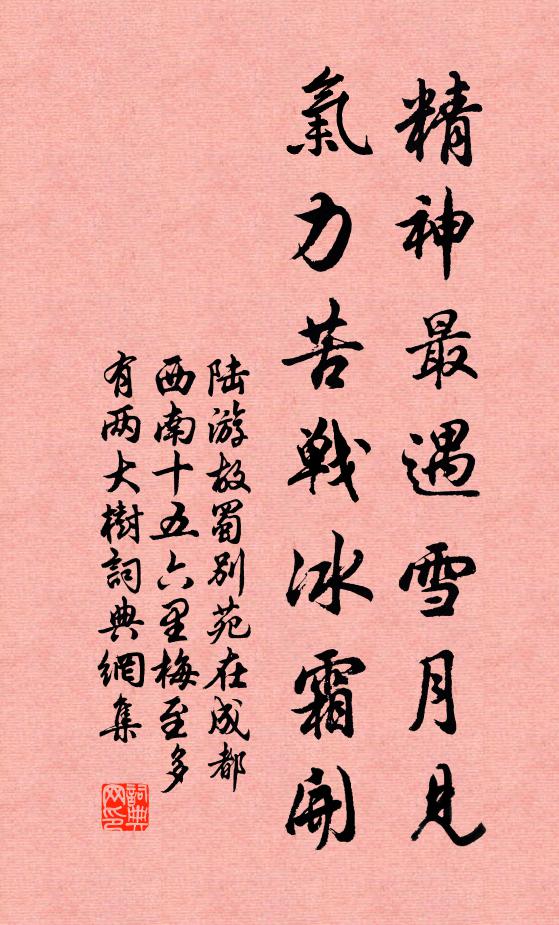 精神最遇雪月見
氣力苦戰冰霜開
陆游故蜀别苑在成都
西南十五六里梅至多
有两大樹詞典網集
詞典
网印